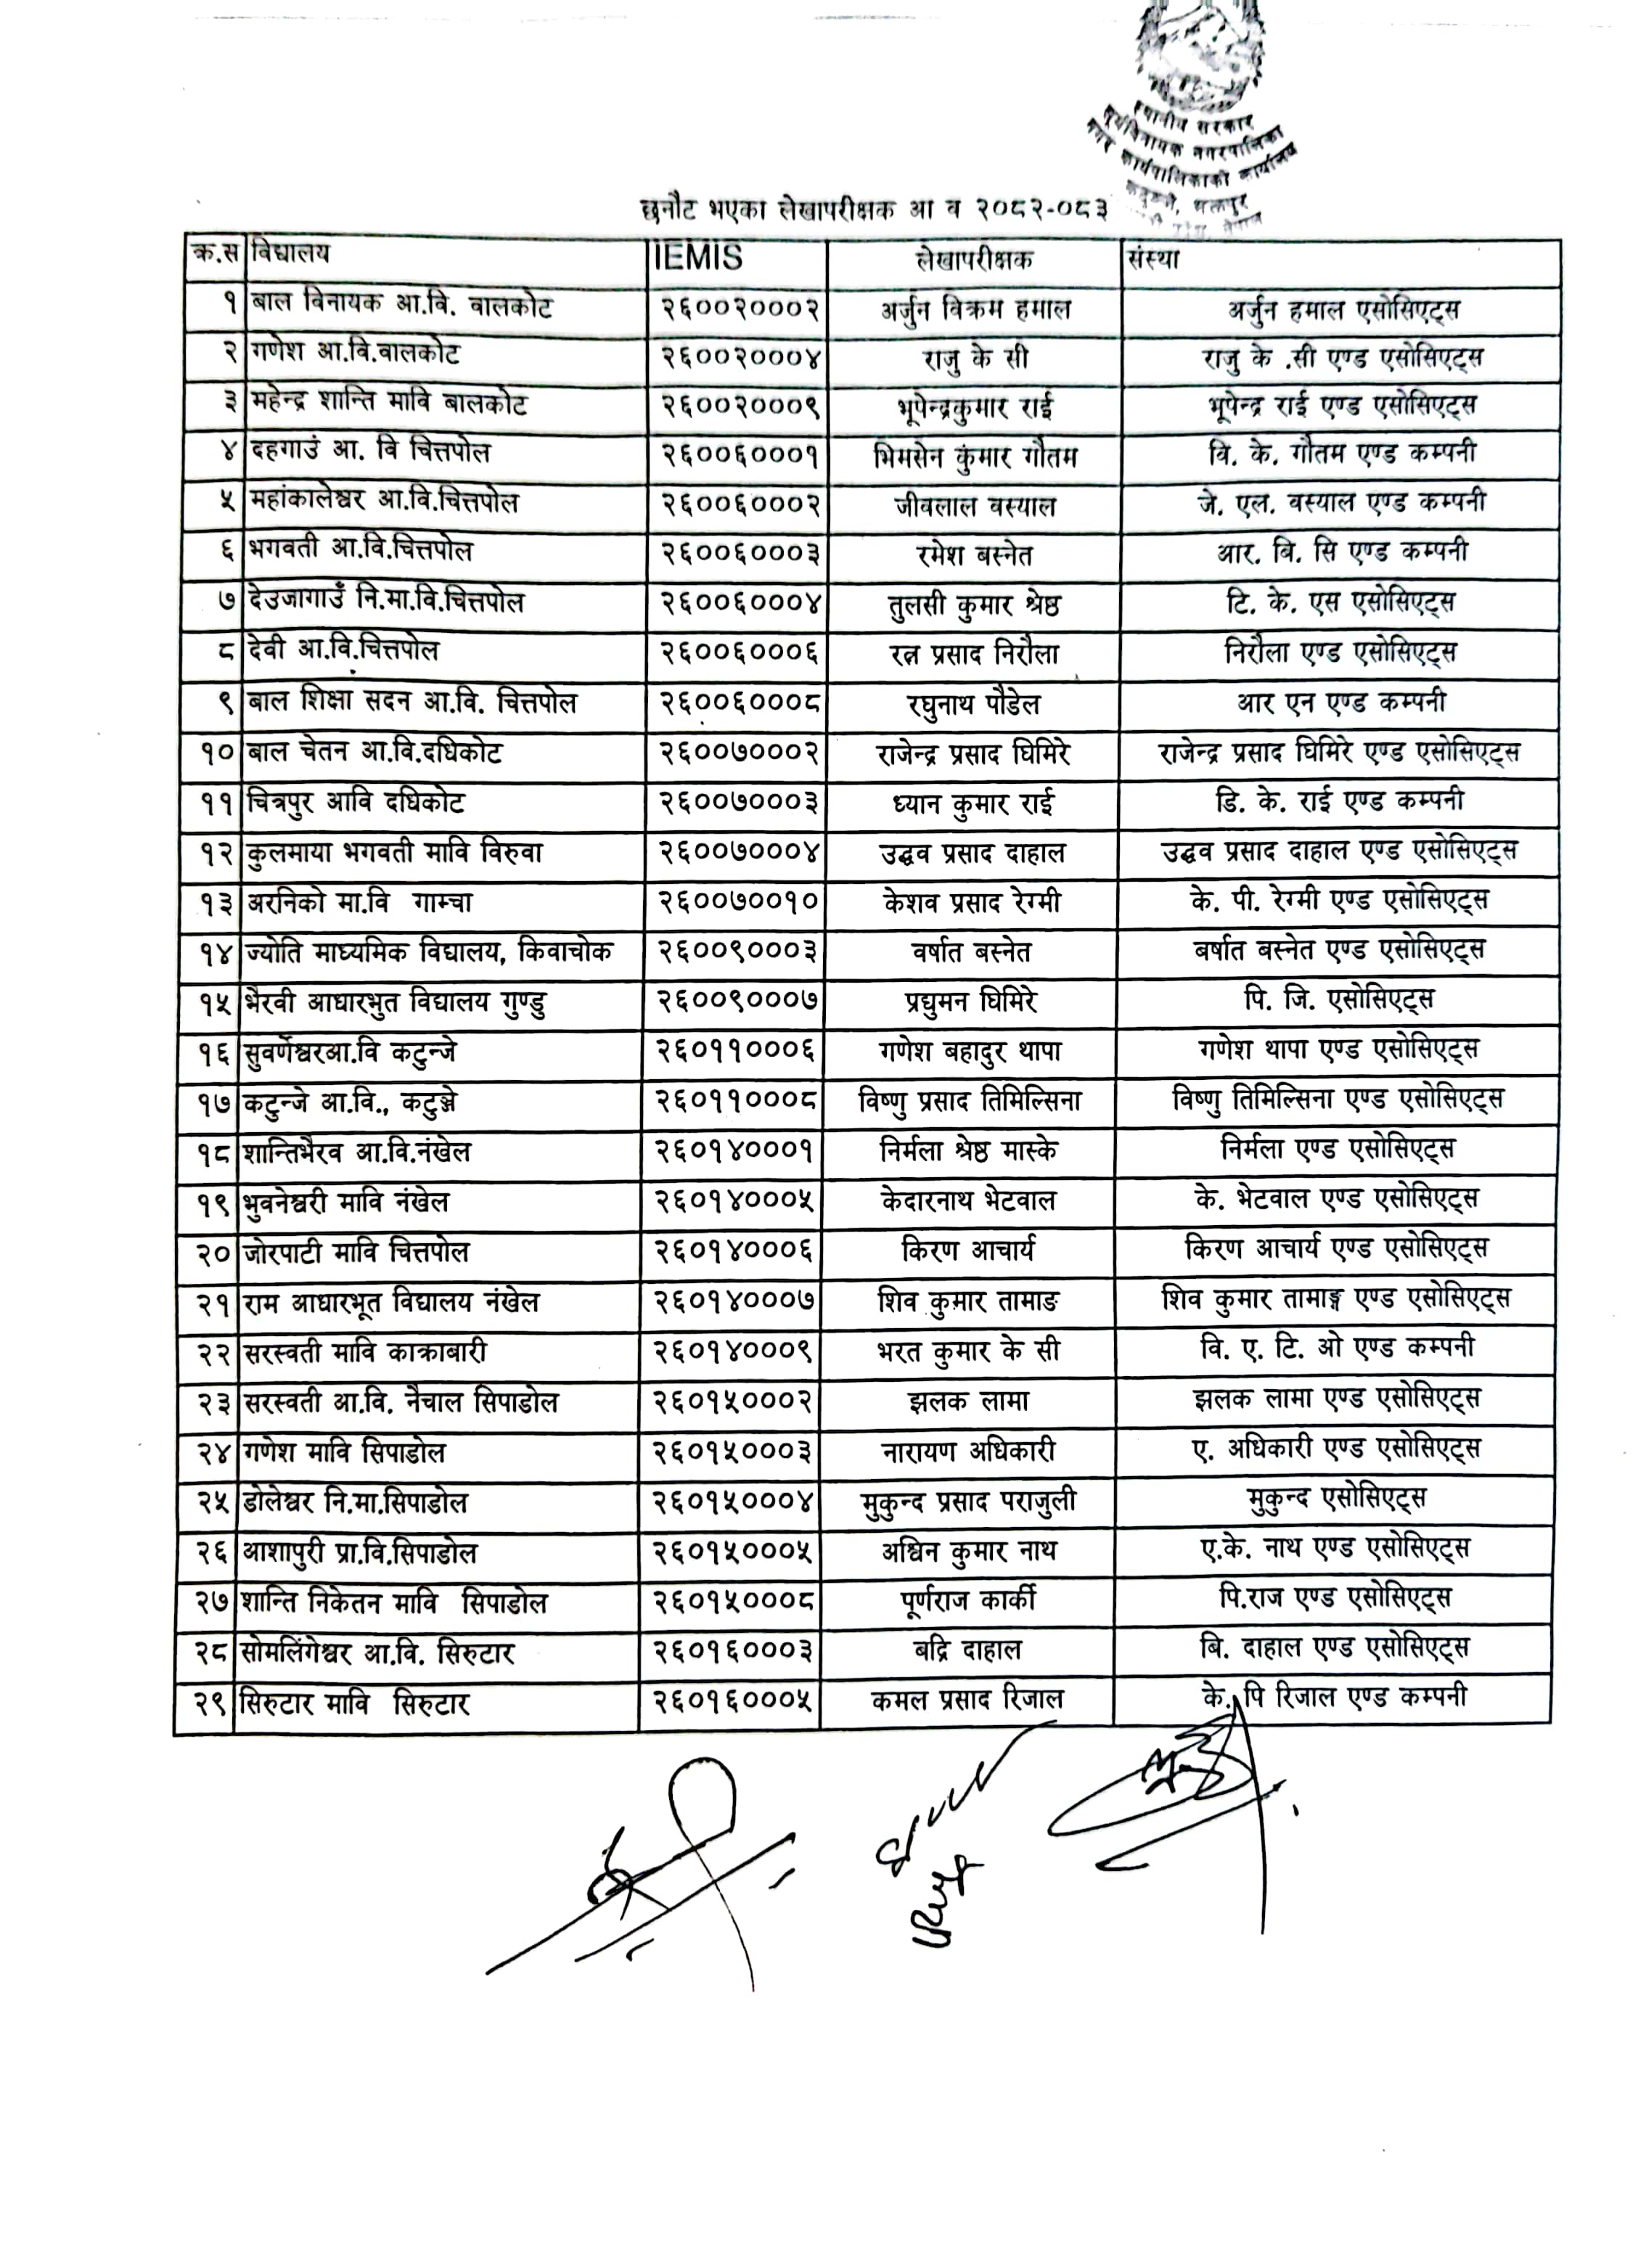 स्थानीय सरकार
सूर्यविनायक नगरपालिका
नगर कार्यपालिकाको कार्यालय
छनौट भएका लेखापरीक्षक आ व २०८२-०८३
क्र.स विद्यालय IEMIS लेखापरीक्षक संस्था
१ बाल विनायक आ.वि. वालकोट २६००२०००२ अर्जुन विक्रम हमाल अर्जुन हमाल एसोसिएट्स
२ गणेश आ.वि.वालकोट २६००२०००४ राजु के सी राजु के .सी एण्ड एसोसिएट्स
३ महेन्द्र शान्ति मावि बालकोट २६००२०००९ भूपेन्द्रकुमार राई भूपेन्द्र राई एण्ड एसोसिएट्स
४ दहगाउं आ. वि चित्तपोल २६००६०००१ भिमसेन कुंमार गौतम वि. के. गौतम एण्ड कम्पनी
५ महांकालेश्वर आ.वि.चित्तपोल २६००६०००२ जीवलाल वस्याल जे. एल. वस्याल एण्ड कम्पनी
६ भगवती आ.वि.चित्तपोल २६००६०००३ रमेश बस्नेत आर. बि. सि एण्ड कम्पनी
७ देउजागाउँ नि.मा.वि.चित्तपोल २६००६०००४ तुलसी कुमार श्रेष्ठ टि. के. एस एसोसिएट्स
८ देवी आ.वि.चित्तपोल २६००६०००६ रत्न प्रसाद निरौला निरौला एण्ड एसोसिएट्स
९ बाल शिक्षा सदन आ.वि. चित्तपोल २६००६०००८ रघुनाथ पौडेल आर एन एण्ड कम्पनी
१० बाल चेतन आ.वि.दधिकोट २६००७०००२ राजेन्द्र प्रसाद घिमिरे राजेन्द्र प्रसाद घिमिरे एण्ड एसोसिएट्स
११ चित्रपुर आवि दधिकोट २६००७०००३ ध्यान कुमार राई डि. के. राई एण्ड कम्पनी
१२ कुलमाया भगवती मावि विरुवा २६००७०००४ उद्धव प्रसाद दाहाल उद्धव प्रसाद दाहाल एण्ड एसोसिएट्स
१३ अरनिको मा.वि गाम्चा २६००७००१० केशव प्रसाद रेग्मी के. पी. रेग्मी एण्ड एसोसिएट्स
१४ ज्योति माध्यमिक विद्यालय, किवाचोक २६००९०००३ वर्षात बस्नेत बर्षात बस्नेत एण्ड एसोसिएट्स
१५ भैरवी आधारभुत विद्यालय गुण्डु २६००९०००७ प्रद्युमन घिमिरे पि. जि. एसोसिएट्स
१६ सुवर्णेश्वरआ.वि कटुन्जे २६०११०००६ गणेश बहादुर थापा गणेश थापा एण्ड एसोसिएट्स
१७ कटुन्जे आ.वि., कटुञ्जे २६०११०००८ विष्णु प्रसाद तिमिल्सिना विष्णु तिमिल्सिना एण्ड एसोसिएट्स
१८ शान्तिभैरव आ.वि.नंखेल २६०१४०००१ निर्मला श्रेष्ठ मास्के निर्मला एण्ड एसोसिएट्स
१९ भुवनेश्वरी मावि नंखेल २६०१४०००५ केदारनाथ भेटवाल के. भेटवाल एण्ड एसोसिएट्स
२० जोरपाटी मावि चित्तपोल २६०१४०००६ किरण आचार्य किरण आचार्य एण्ड एसोसिएट्स
२१ राम आधारभूत विद्यालय नंखेल २६०१४०००७ शिव कुमार तामाङ शिव कुमार तामाङ्ग एण्ड एसोसिएट्स
२२ सरस्वती मावि काक्राबारी २६०१४०००९ भरत कुमार के सी वि. ए. टि. ओ एण्ड कम्पनी
२३ सरस्वती आ.वि. नैचाल सिपाडोल २६०१५०००२ झलक लामा झलक लामा एण्ड एसोसिएट्स
२४ गणेश मावि सिपाडोल २६०१५०००३ नारायण अधिकारी ए. अधिकारी एण्ड एसोसिएट्स
२५ डोलेश्वर नि.मा.सिपाडोल २६०१५०००४ मुकुन्द प्रसाद पराजुली मुकुन्द एसोसिएट्स
२६ आशापुरी प्रा.वि.सिपाडोल २६०१५०००५ अश्विन कुमार नाथ ए.के. नाथ एण्ड एसोसिएट्स
२७ शान्ति निकेतन मावि सिपाडोल २६०१५०००८ पूर्णराज कार्की पि.राज एण्ड एसोसिएट्स
२८ सोमलिंगेश्वर आ.वि. सिरुटार २६०१६०००३ बद्रि दाहाल बि. दाहाल एण्ड एसोसिएट्स
२९ सिरुटार मावि सिरुटार २६०१६०००५ कमल प्रसाद रिजाल के. पि रिजाल एण्ड कम्पनी